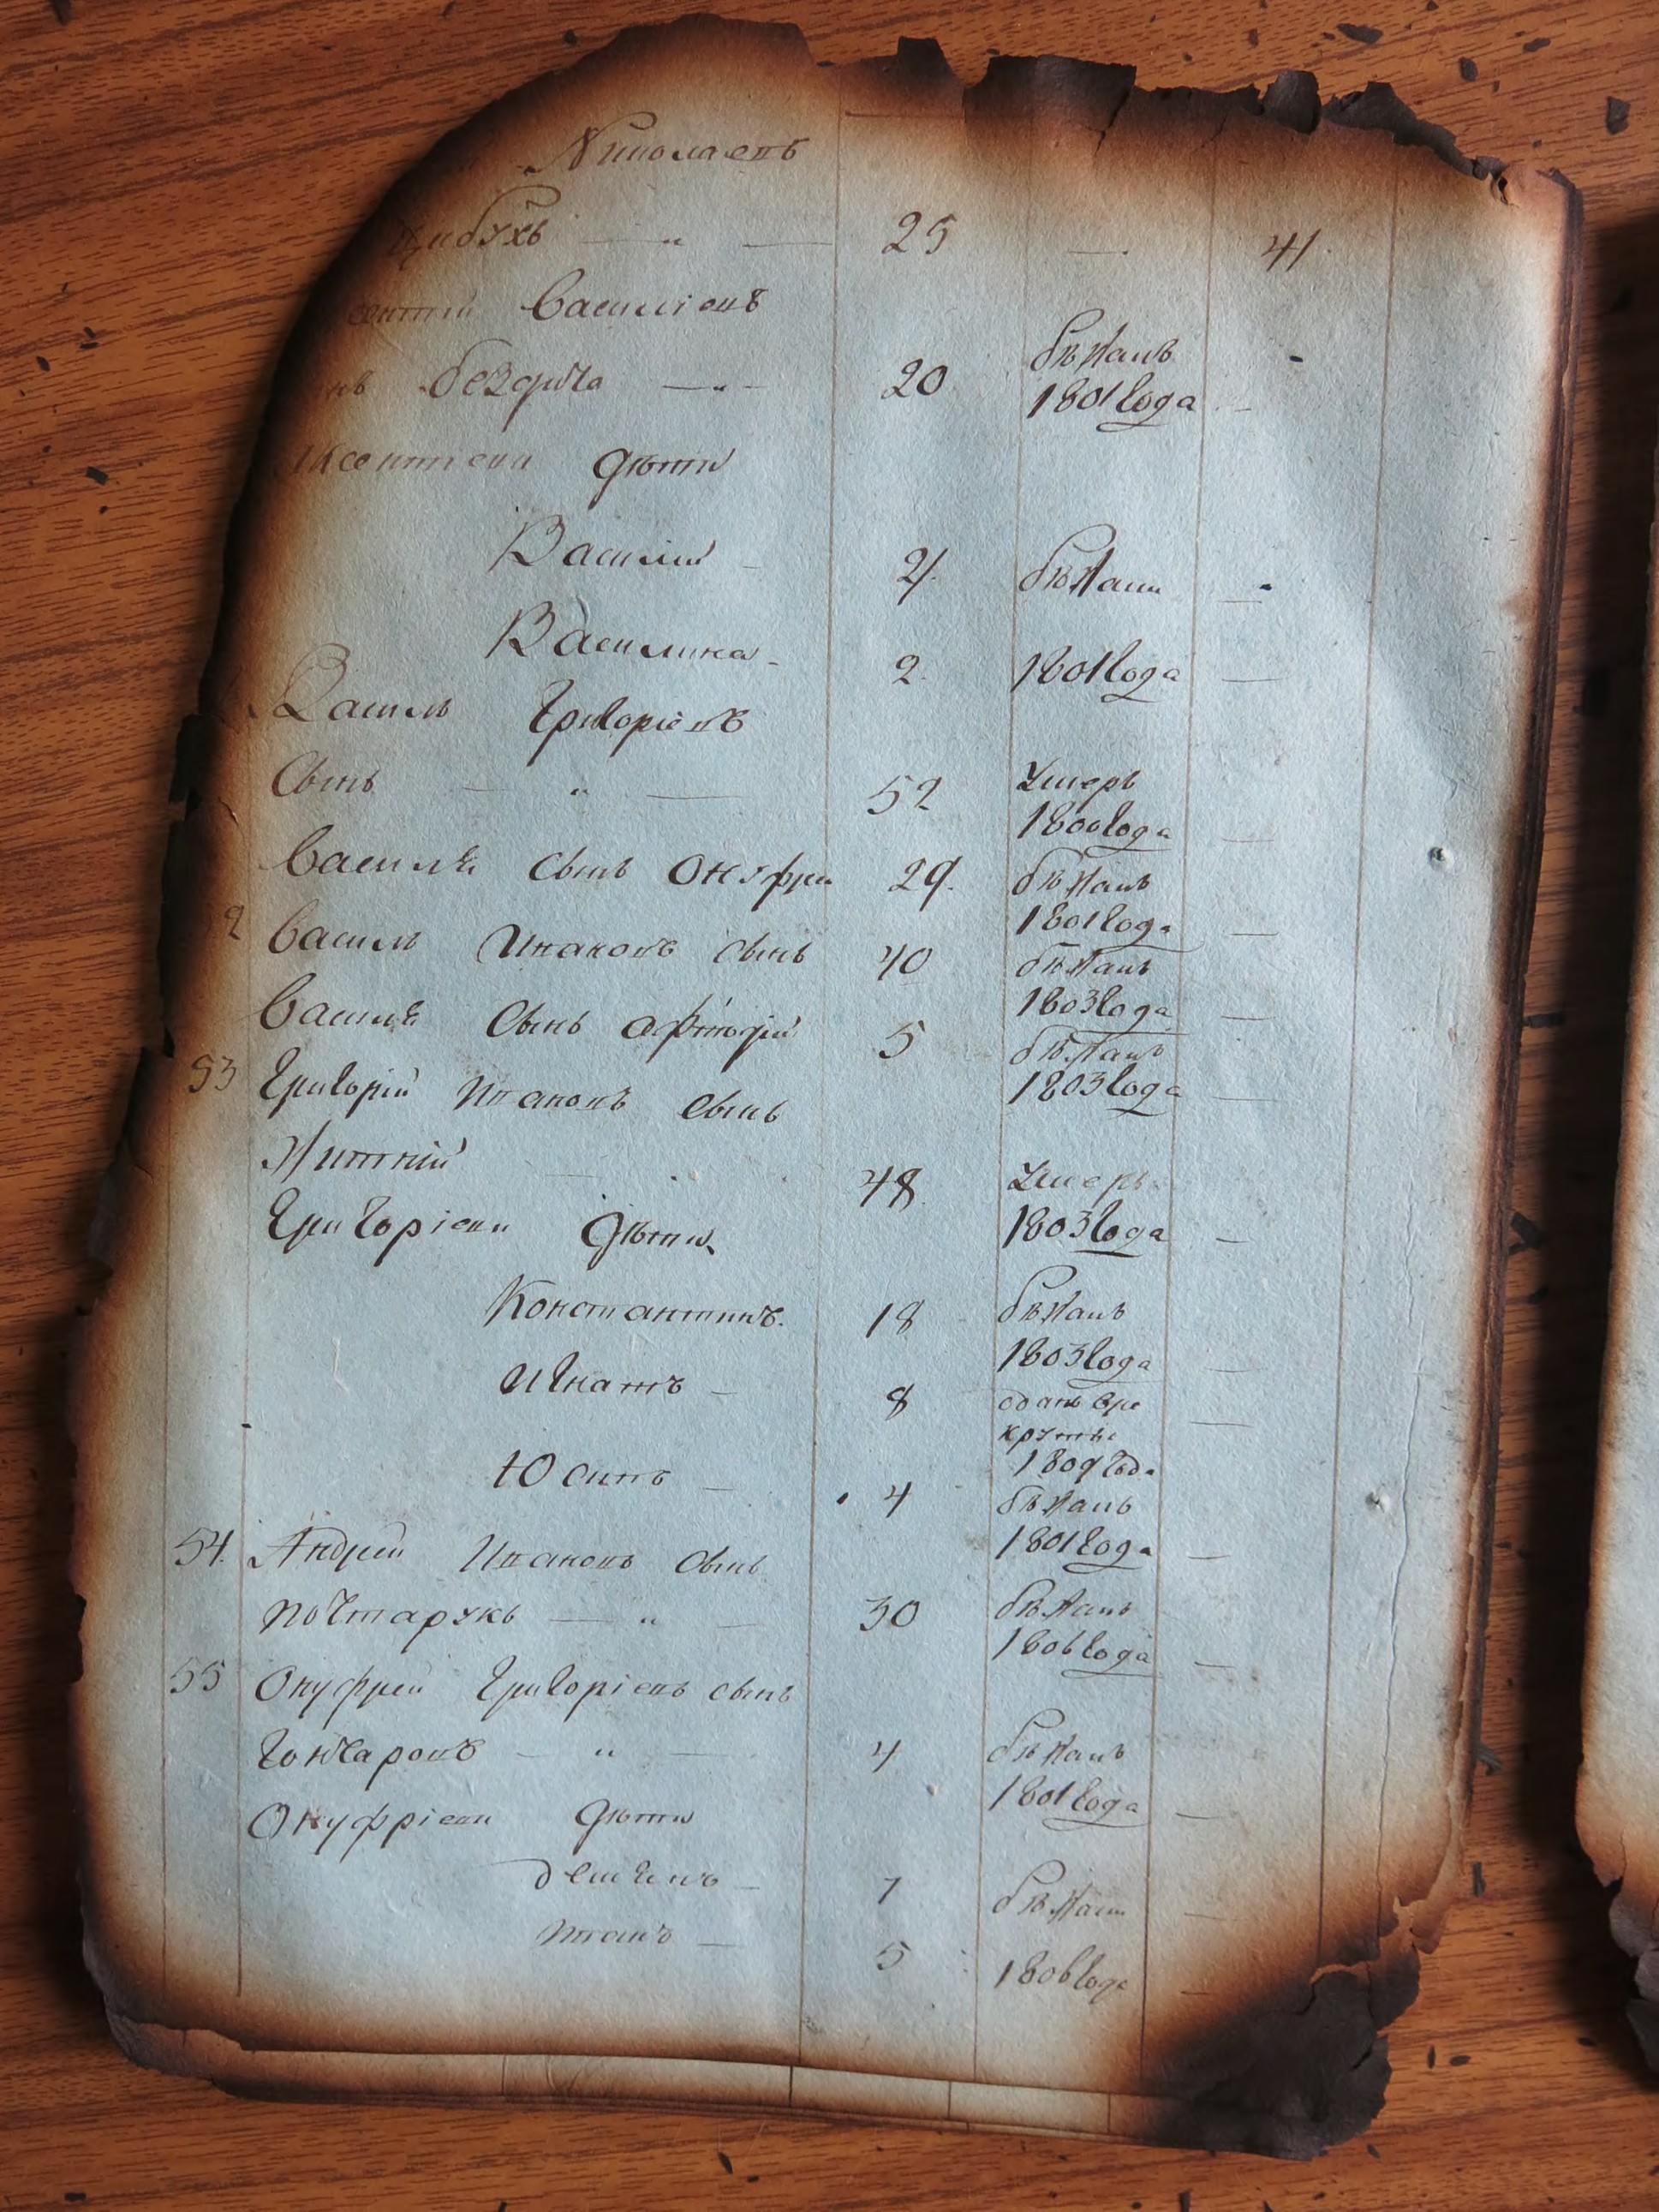 Николаевъ
Цибухъ — „ — 25 — 41.
сентiй Василiевъ
нъ бездѣча — „ - 20 бѣжалъ
1801 года —
Аксентiеви дѣти
Василiй - 4. бѣжали —
Василина - 2. 1801 года —
Василь Григорiевъ
Сынъ — „ — 52 Умеръ
1800 года —
Василѣй Сынъ Онуфри 29. бѣжалъ
1801 года —
2 Василь Ивановъ сынъ 40 бѣжалъ
1803 года —
Василѣй Сынъ 5 бѣжалъ
1803 года —
53 Григорiй Ивановъ сынъ
Житнiй — 48. Умеръ
1803 года —
Григорiеви Дѣти
Константинъ. 18 бѣжалъ
1803 года —
Игнатъ - 8 отданъ вре
круты —
1809 года
Юсипъ — 4 бѣжалъ
1801 года —
54. Андрей Ивановъ сынъ
Почтарукъ — „ — 30 бѣжалъ
1806 года —
55 Онуфрей Григорiевъ сынъ
Гончаровъ — „ — 4 бѣжалъ
1801 года —
Онуфрiеви Дѣти
7 бѣжали —
Иванъ — 5 1806 года —